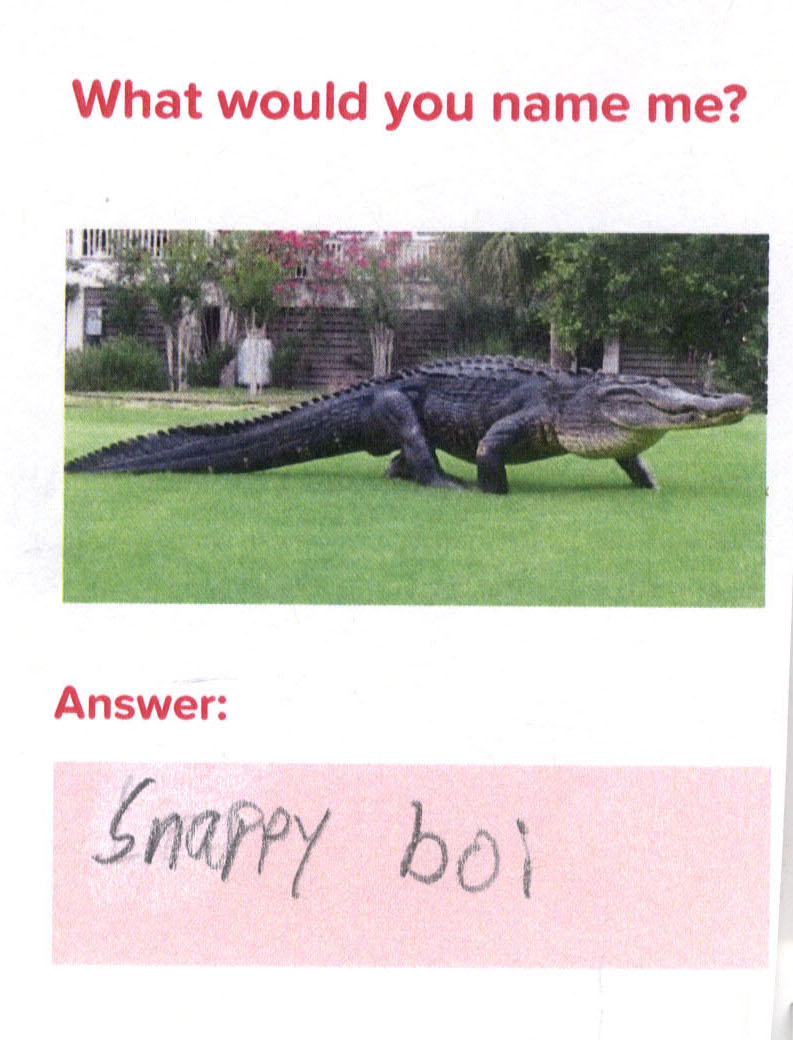 What would you name me?
Answer:
Snappy boi